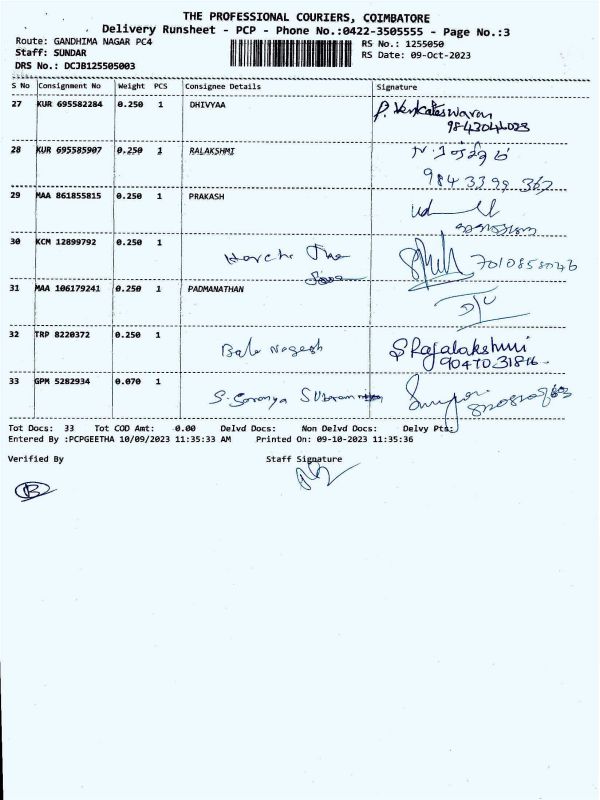 THE PROFESSIONAL COURIERS, COIMBATORE
Delivery Runsheet - PCP - Phone No.:0422-3505555 - Page No.:3
Route: GANDHIMA NAGAR PC4 RS No.: 1255050
Staff: SUNDAR RS Date: 09-Oct-2023
DRS No.: DCJB125505003
S No Consignment No Weight PCS Consignee Details Signature
27 KUR 695582284 0.250 1 DHIVYAA P. Venkateswaran
9843044023
28 KUR 695585907 0.250 1 RALAKSHMI
984 3399 362
29 MAA 861855815 0.250 1 PRAKASH
30 KCM 12899792 0.250 1 7010858046
31 MAA 106179241 0.250 1 PADMANATHAN
32 TRP 8220372 0.250 1 Bala Nagesh S Rajalakshmi
90470 31816
33 GPM 5282934 0.070 1 S. Soronya
Tot Docs: 33 Tot COD Amt: 0.00 Delvd Docs: Non Delvd Docs: Delvy Pts:
Entered By :PCPGEETHA 10/09/2023 11:35:33 AM Printed On: 09-10-2023 11:35:36
Verified By Staff Signature
B